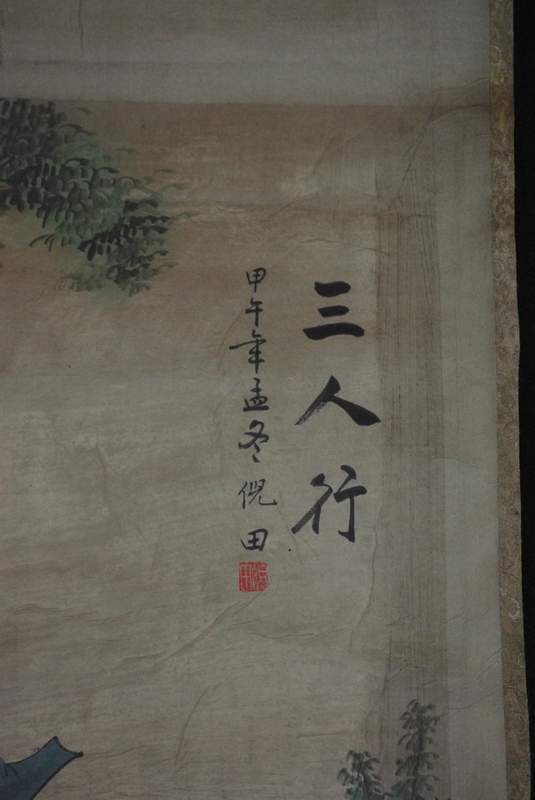 三人行
甲午年孟冬倪田